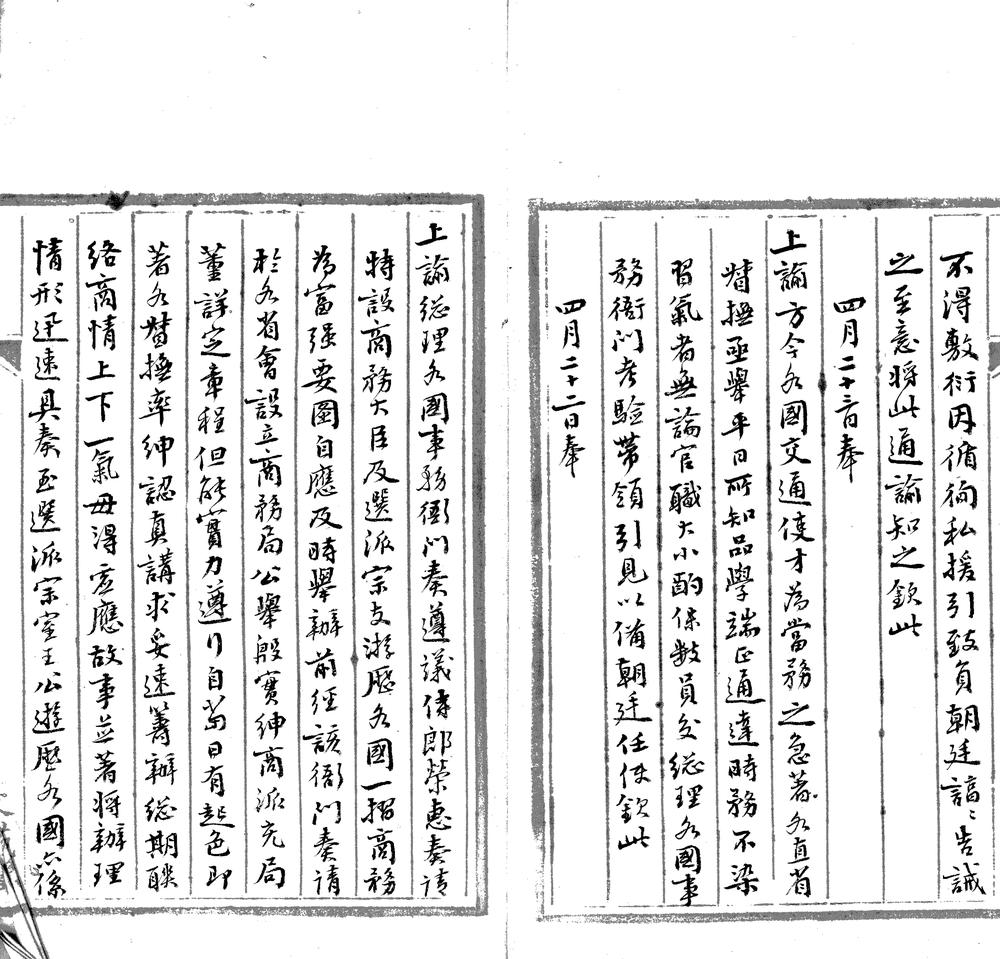 不得敷衍因循徇私援引致負朝廷諄〻告誡
之至意將此通諭知之欽此
四月二十三日奉
上諭方今各國交通使才為當務之急著各直省
督撫亟舉平日所知品學端正通達時務不染
習氣者無論官職大小酌保數員交總理各國事
務衙門考驗帶領引見以備朝廷任使欽此
四月二十二日奉
上諭總理各國事務衙門奏遵議侍郎榮惠奏請
特設商務大臣及選派宗支游歷各國一摺商務
為富强要圖自應及時舉辦前經該衙門奏請
於各省會設立商務局公舉殷實紳商派充局
董詳定章程但能實力遵行自荀日有起色即
著各督撫率紳認真講求妥速籌辦總期聯
絡商情上下一氣毋得虛應故事並著將辦理
情形迅速具奏至選派宗室王公遊歷各國亦係